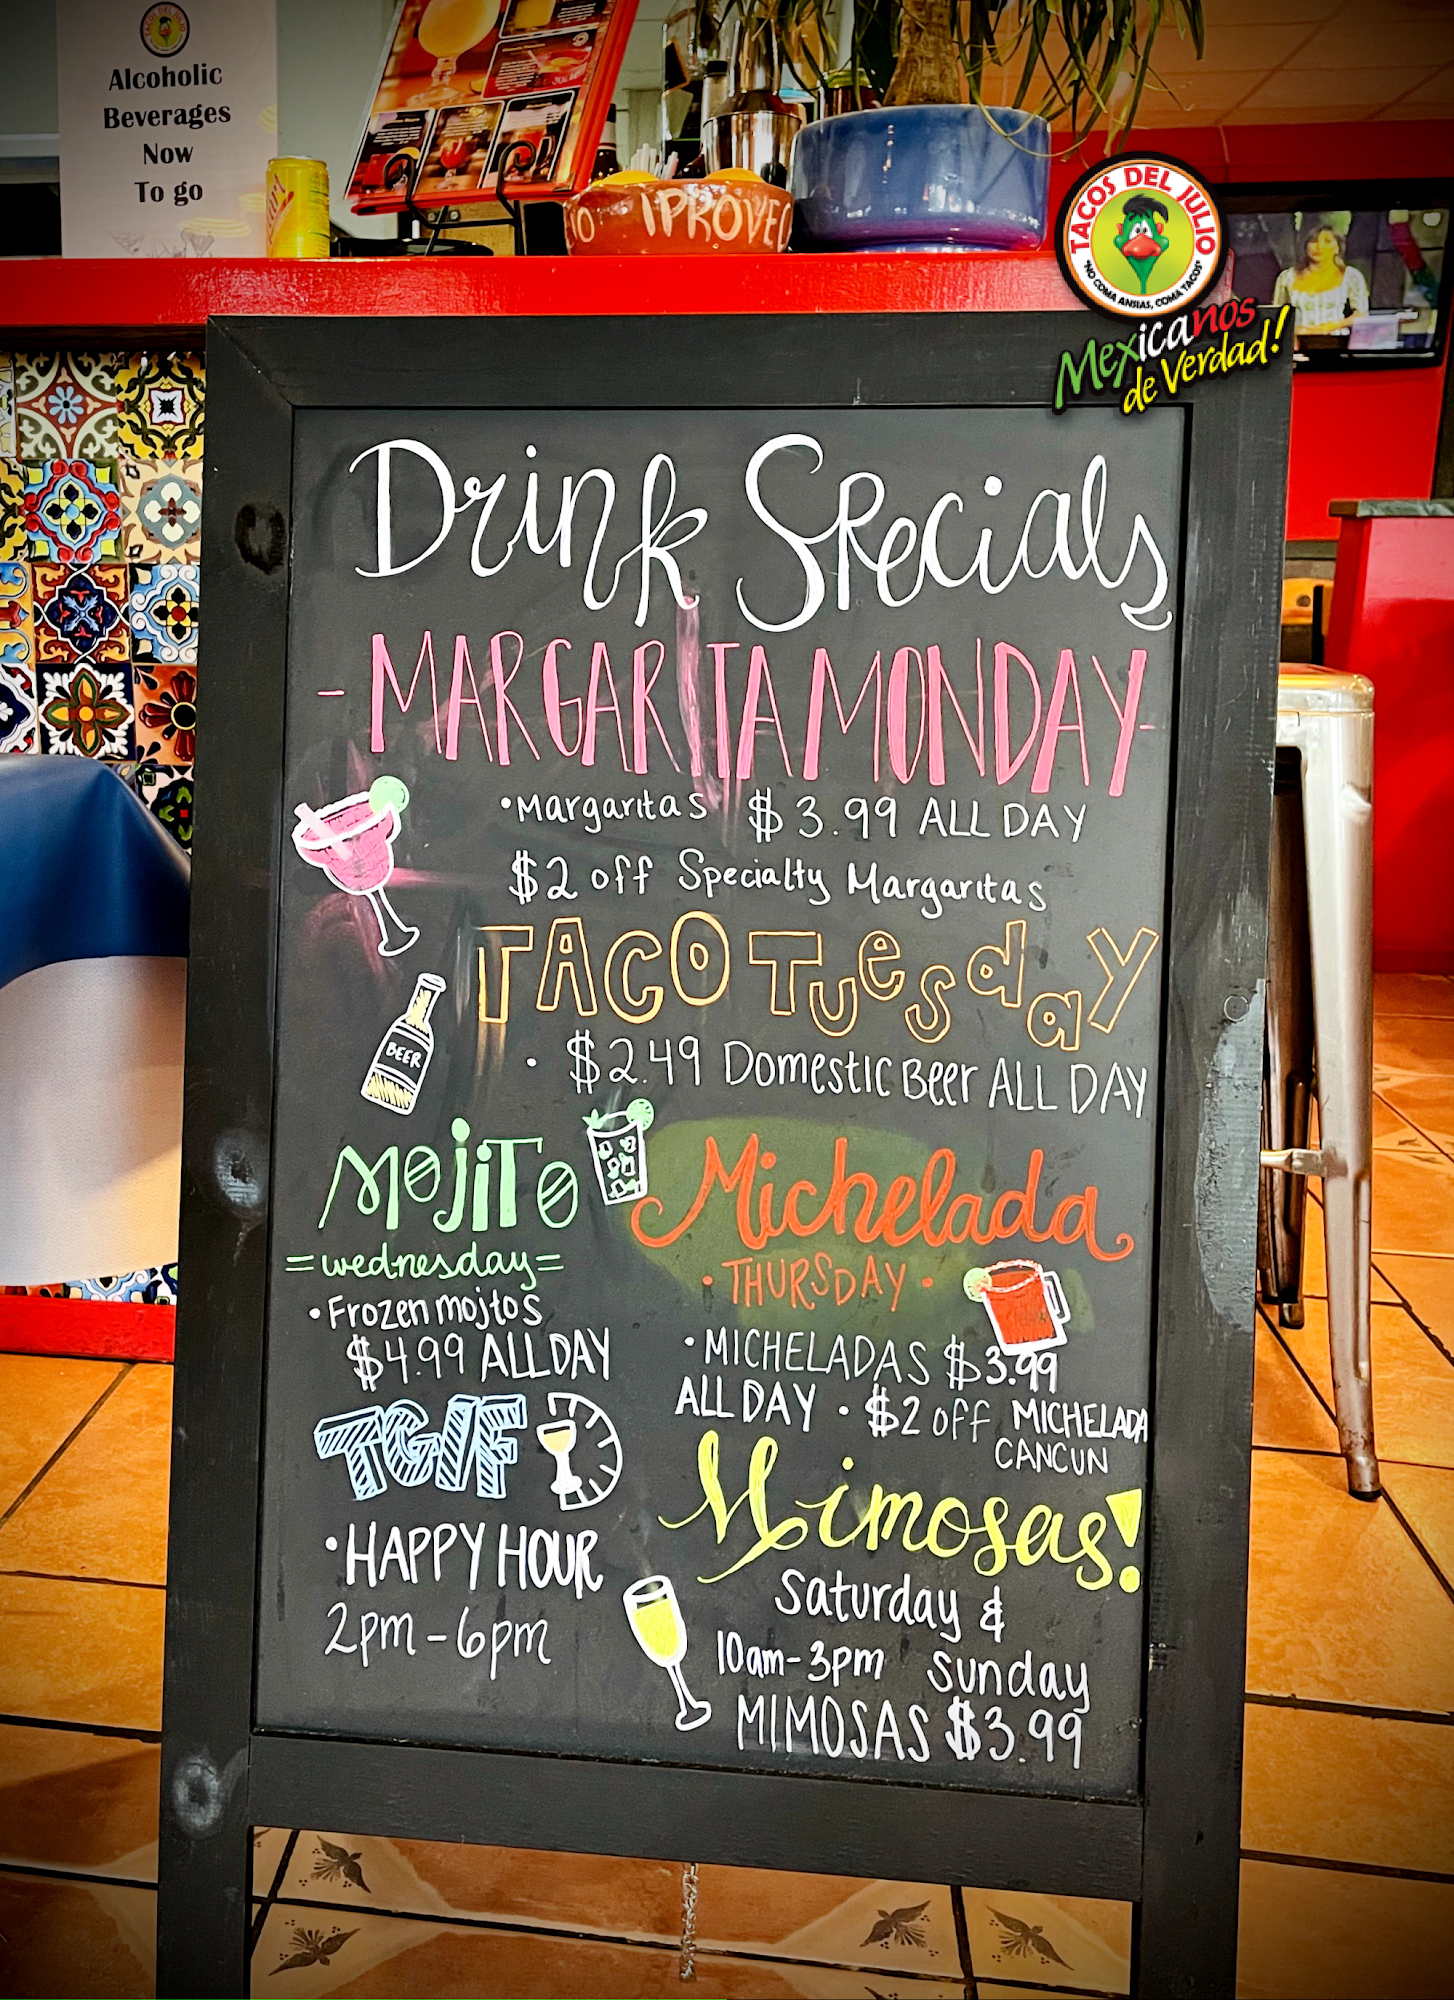 TACOS DEL JULIO
Alcoholic
Beverages
Now
To go
IPROVEC
TACOS DEL JULIO
"NO COMA ANSIAS, COMA TACOS"
Mexicanos
de Verdad!
Drink Specials
- MARGARITA MONDAY -
•Margaritas $3.99 ALL DAY
$2 off Specialty Margaritas
TACO TuesdaY
• $2.49 Domestic Beer ALL DAY
BEER
MOJITO
=wednesday=
•Frozen mojtos
$4.99 ALL DAY
Michelada
•THURSDAY•
•MICHELADAS $3.99
ALL DAY • $2 off MICHELADA
CANCUN
TGIF
•HAPPY HOUR
2pm-6pm
Mimosas!
Saturday &
10am-3pm Sunday
MIMOSAS $3.99